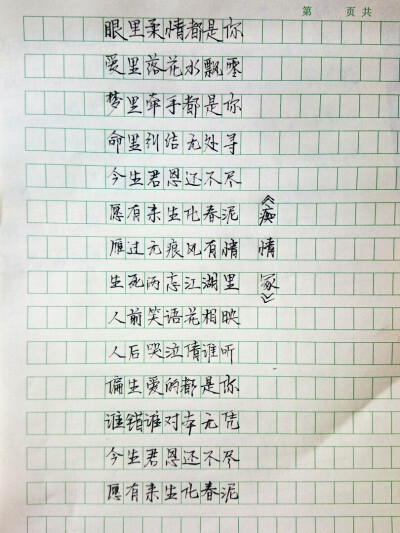 第 页 共
眼里柔情都是你
爱里落花水飘零
梦里牵手都是你
命里纠结无处寻
今生君恩还不尽
愿有来生化春泥
雁过无痕风有情
生死两忘江湖里
人前笑语花相映
人后哭泣倩谁听
偏生爱的都是你
谁错谁对本无凭
今生君恩还不尽
愿有来生化春泥
《痴情冢》